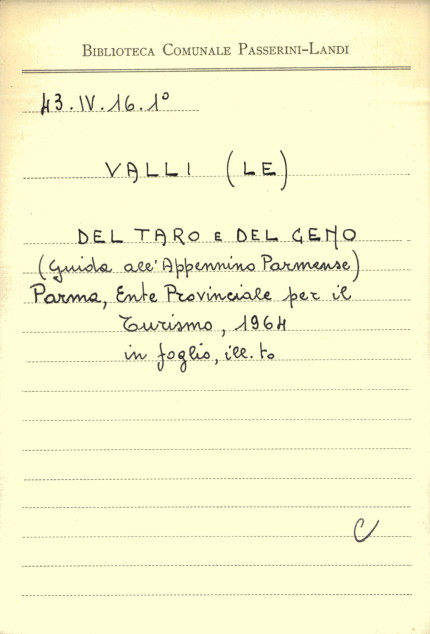 BIBLIOTECA COMUNALE PASSERINI-LANDI
43.IV.16.1°
VALLI (LE)
DEL TARO E DEL CENO
(Guida all'Appennino Parmense)
Parma, Ente Provinciale per il
Turismo, 1964
in foglio, ill.to
C